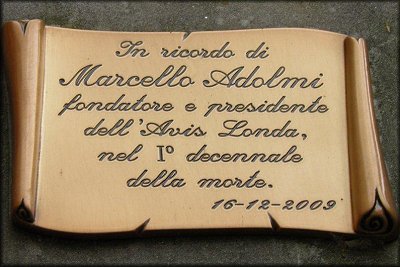 In ricordo di
Marcello Adolmi
fondatore e presidente
dell'Avis Londa,
nel I° decennale
della morte.
16-12-2009